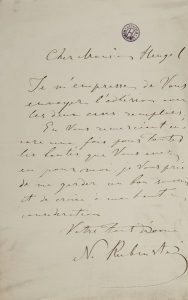 Cher Monsieur Heugel
Je m'empresse de Vous
envoyer l'adhésion
les deux
En Vous remerciant
une fois pour toutes
les bontés que Vous
pour moi je Vous prie
de me garder un bon
et de croire à ma haute
considération
Votre tout dévoué
N. Rubinstein